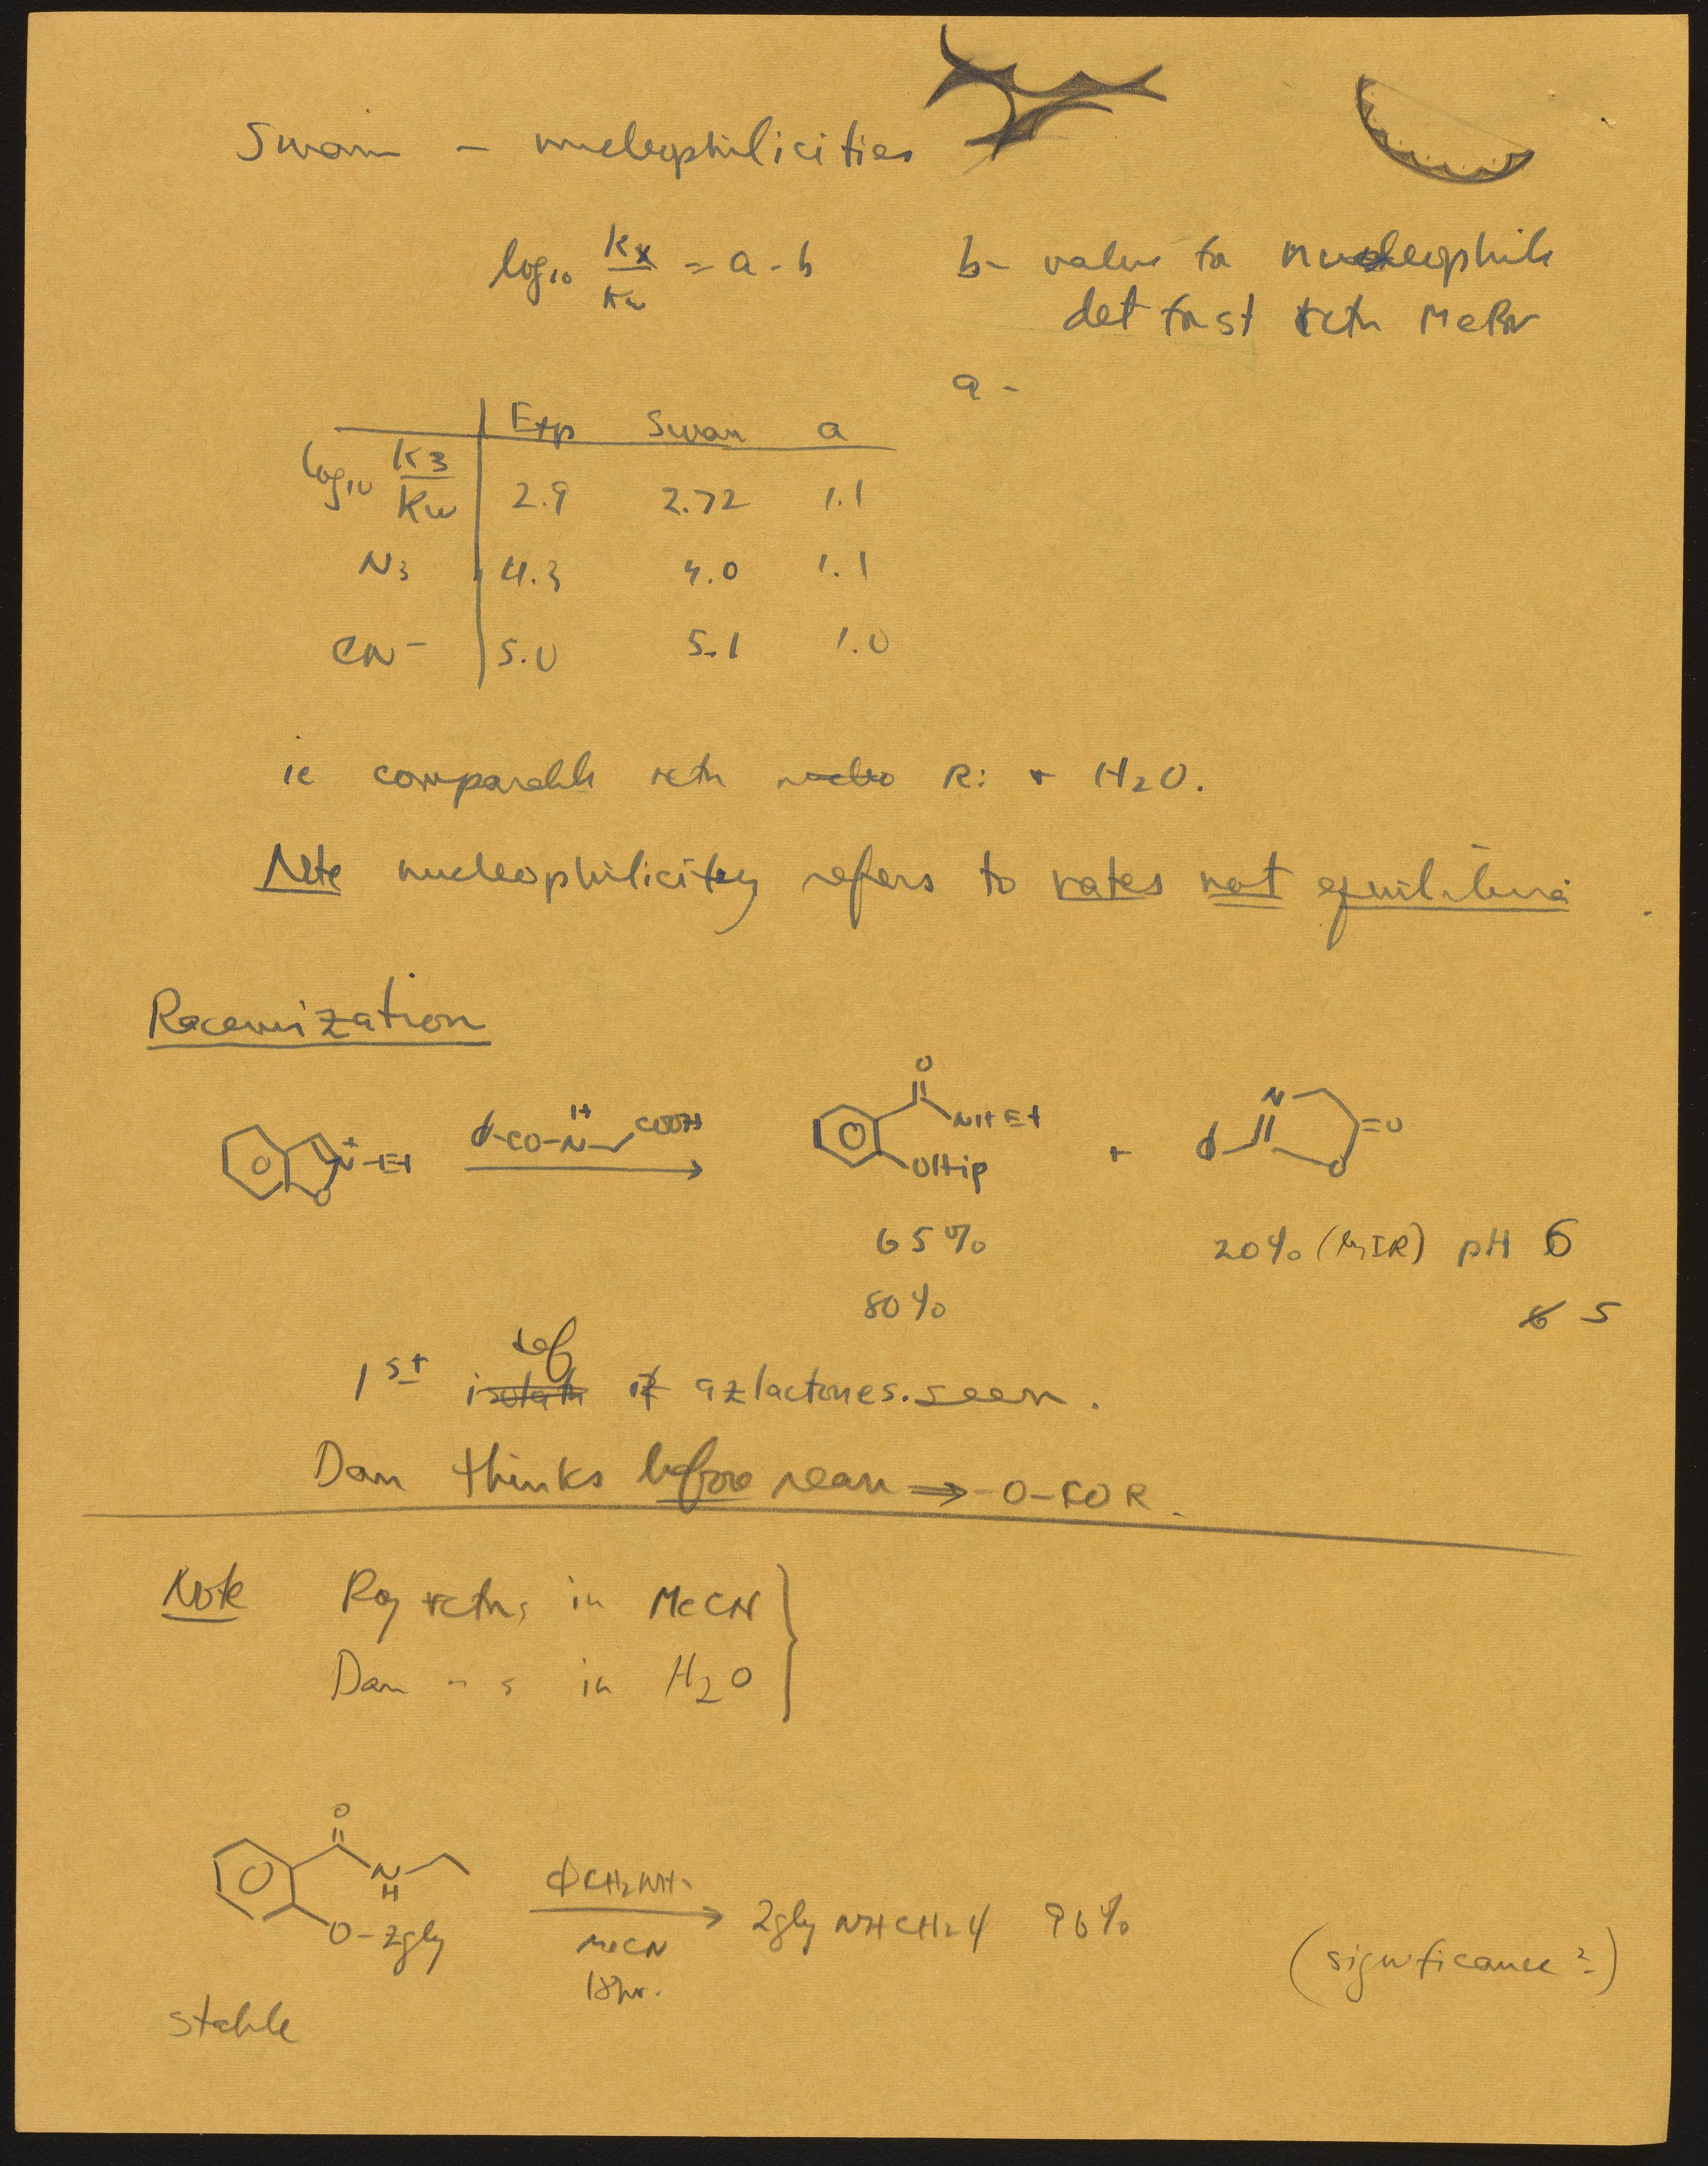 Swain - nucleophilicities
log10 Kx/Kw = a · b
b - value for nucleophile
det for st rctn MeBr
a -
Exp Swain a
log10 K3/Kw 2.9 2.72 1.1
N3 4.3 4.0 1.1
CN⁻ 5.0 5.1 1.0
ie comparable rctn R: + H2O.
Note nucleophilicity refers to rates not equilibria.
Racemization
N⁺-Et O
ϕ-CO-N H COOH
O NHEt OHip
+
ϕ N =O O
65% 20% (by IR) pH 6
80% 5
1st azlactones. seen.
Dan thinks before rearr ⇒ -O-COR.
Note Roy rctns in MeCN
Dan " s in H2O
O N H O-Zgly
ϕCH2NH2
MeCN
18hr.
Zgly NHCH2ϕ 96%
(significance?)
stable